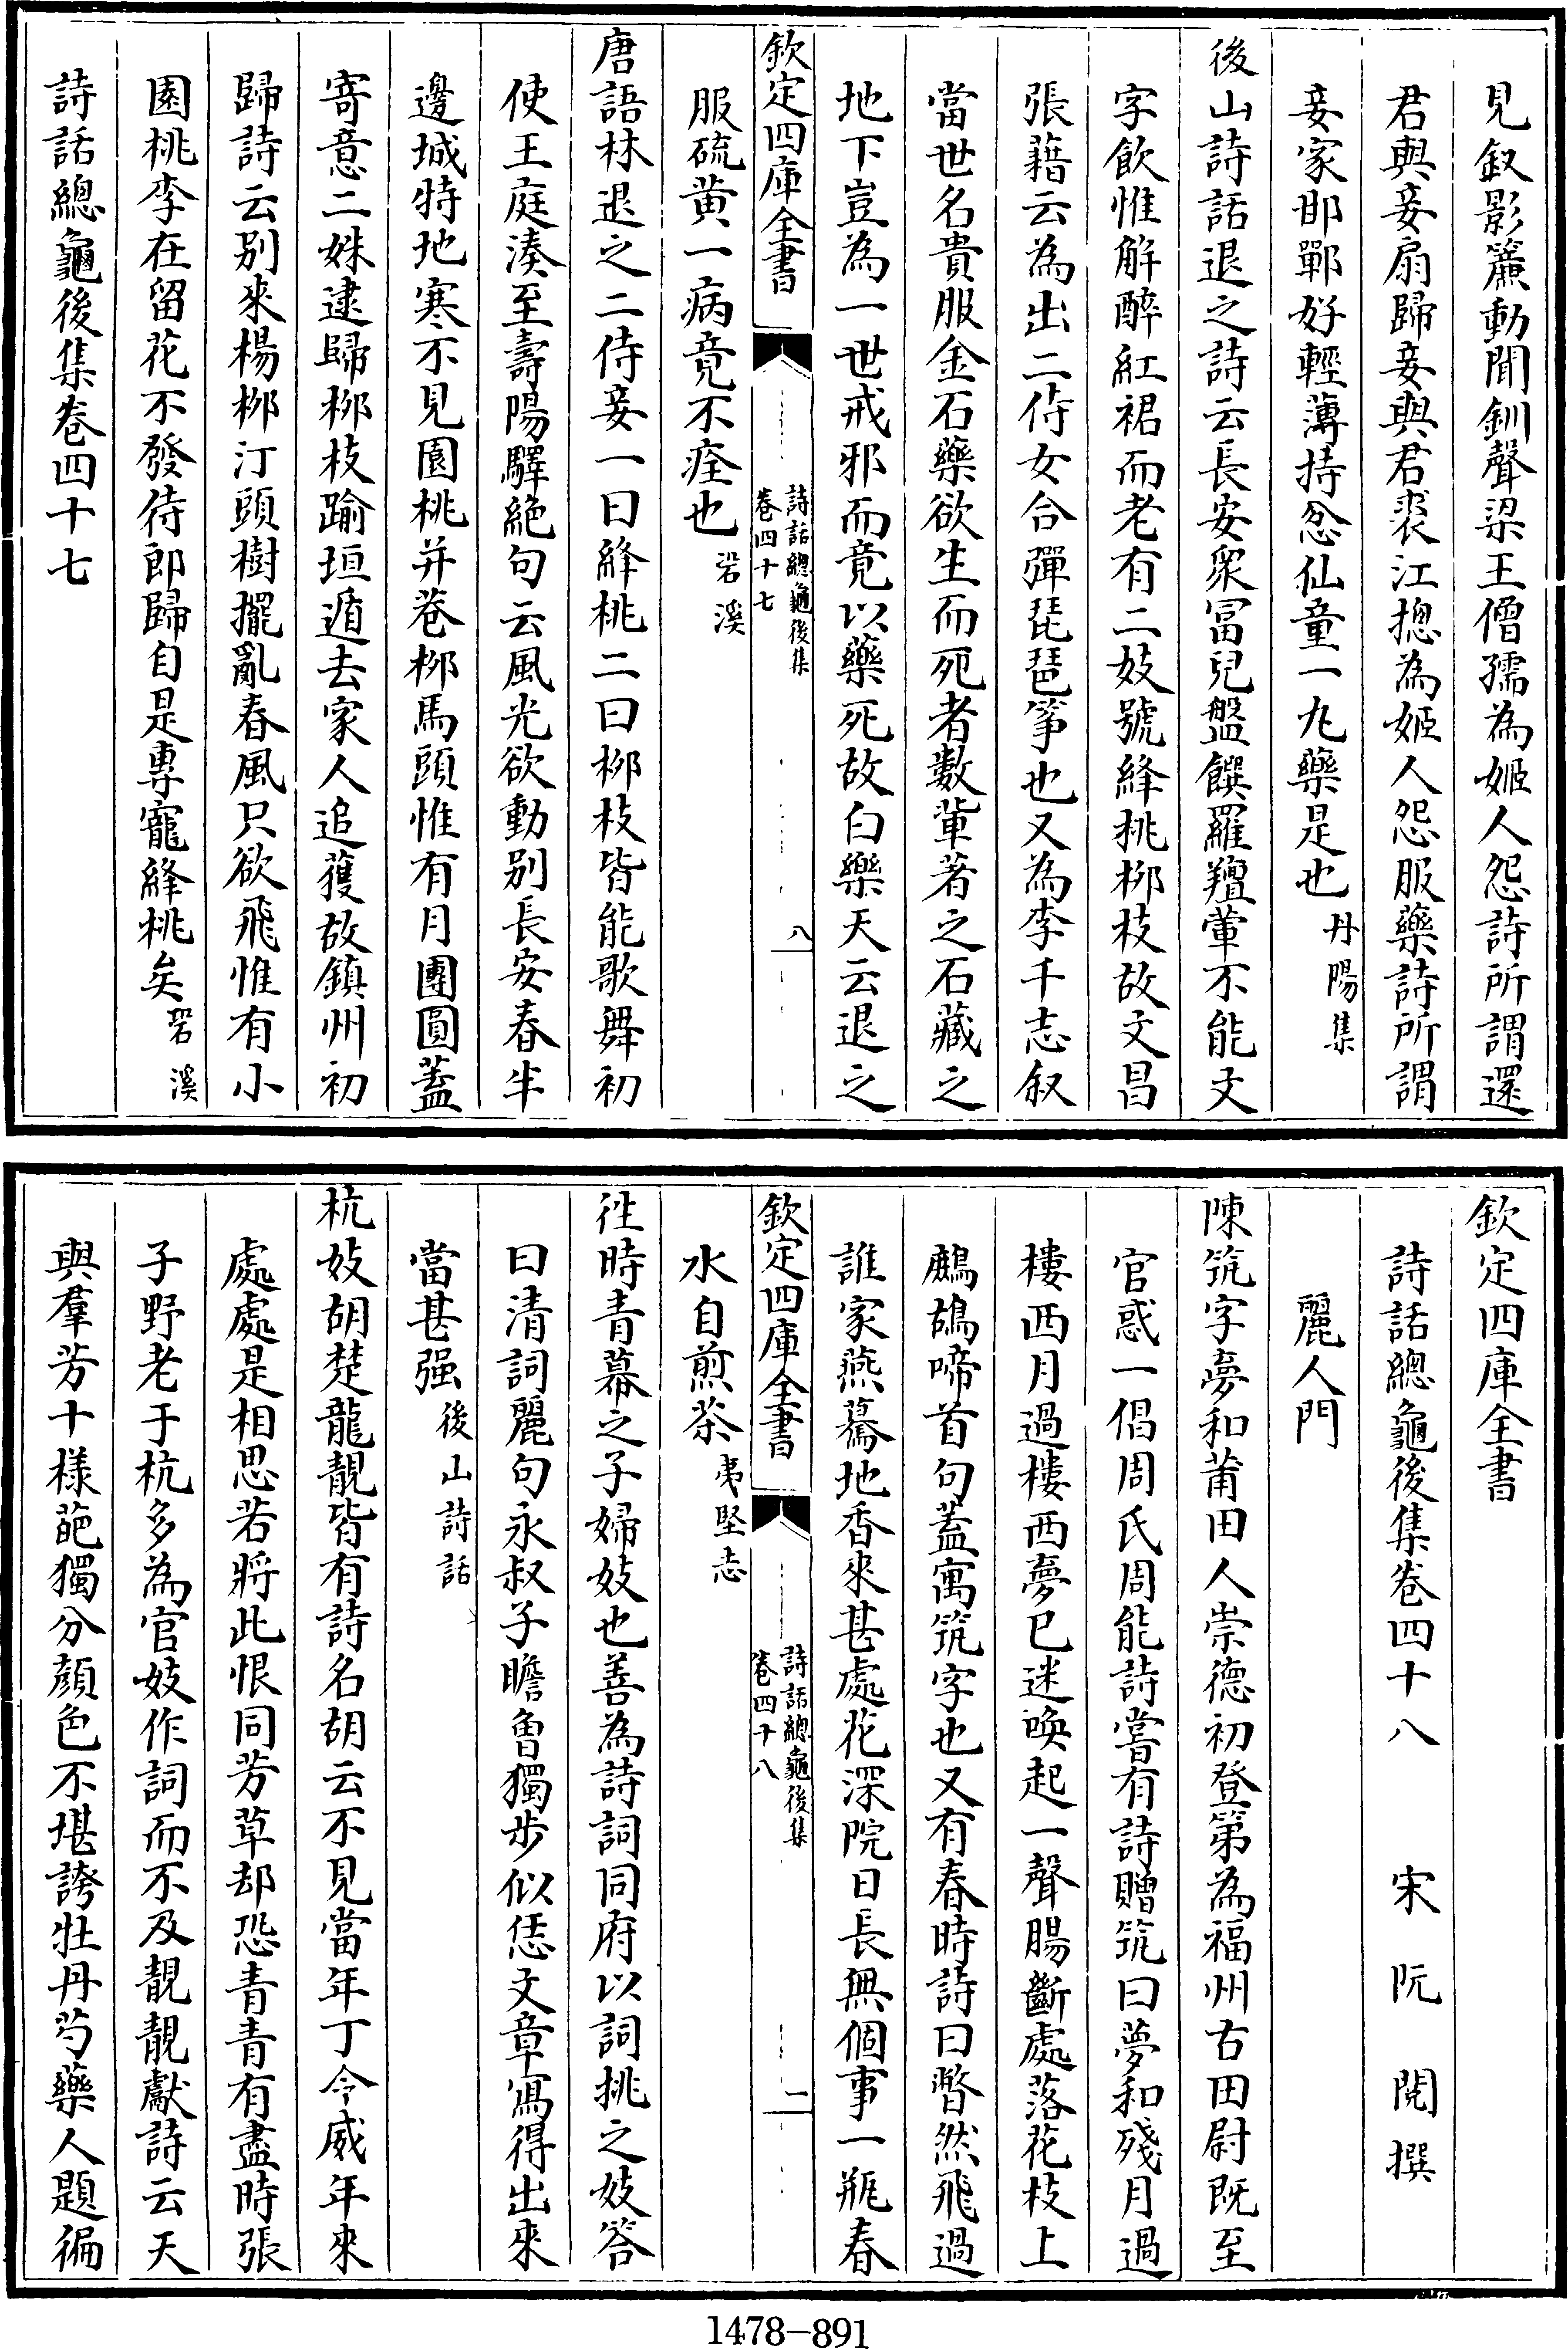 見釵影簾動聞釧聲梁王僧孺為姬人怨詩所謂還
君與妾扇歸妾與君裘江摠為姬人怨服藥詩所謂
妾家邯鄲好輕薄持忿仙童一丸藥是也丹陽集
後山詩話退之詩云長安衆冨兒盤饌羅羶葷不能文
字飲惟解醉紅裙而老有二妓號絳桃栁枝故文昌
張藉云為出二侍女合彈琵琶筝也又為李千志叙
當世名貴服金石藥欲生而死者數軰著之石藏之
地下豈為一世戒邪而竟以藥死故白樂天云退之
欽定四庫全書
詩話總龜後集
卷四十七
八
服硫黄一病竟不痊也苕溪
唐語林退之二侍妾一曰絳桃二曰栁枝皆能歌舞初
使王庭湊至壽陽驛絶句云風光欲動别長安春半
邊城特地寒不見園桃并巷栁馬頭惟有月團圓蓋
寄意二姝逮歸栁枝踰垣遁去家人追獲故鎮州初
歸詩云别來楊栁汀頭樹擺亂春風只欲飛惟有小
園桃李在留花不發待郎歸自是專寵絳桃矣苕溪
詩話總龜後集卷四十七
欽定四庫全書
詩話總龜後集卷四十八 宋 阮 閱 撰
麗人門
陳筑字夢和莆田人崇德初登第為福州古田尉既至
官惑一倡周氏周能詩嘗有詩贈筑曰夢和殘月過
樓西月過樓西夢已迷喚起一聲腸斷處落花枝上
鷓鴣啼首句蓋寓筑字也又有春時詩曰瞥然飛過
誰家燕驀地香來甚處花深院日長無個事一瓶春
欽定四庫全書
詩話總龜後集
卷四十八
二
水自煎茶夷堅志
往時青幕之子婦妓也善為詩詞同府以詞挑之妓答
曰清詞麗句永叔子瞻魯獨步似恁文章寫得出來
當甚强後山詩話
杭妓胡楚龍靚皆有詩名胡云不見當年丁令威年來
處處是相思若將此恨同芳草却恐青青有盡時張
子野老于杭多為官妓作詞而不及靚靚獻詩云天
與羣芳十様葩獨分顔色不堪誇牡丹芍藥人題徧
1478-891